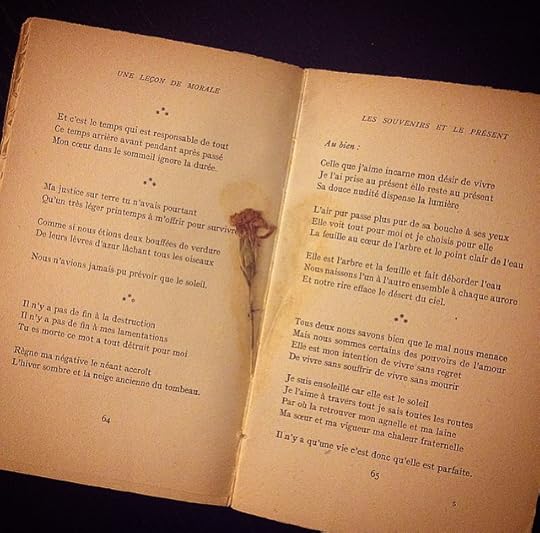 UNE LEÇON DE MORALE
Et c'est le temps qui est responsable de tout
Ce temps arrière avant pendant après passé
Mon cœur dans le sommeil ignore la durée.
Ma justice sur terre tu n'avais pourtant
Qu'un très léger printemps à m'offrir pour survivre
Comme si nous étions deux bouffées de verdure
De leurs lèvres d'azur lâchant tous les oiseaux
Nous n'avions jamais pu prévoir que le soleil.
Il n'y a pas de fin à la destruction
Il n'y a pas de fin à mes lamentations
Tu es morte ce mot a tout détruit pour moi
Règne ma négative le néant accroît
L'hiver sombre et la neige ancienne du tombeau.
64
LES SOUVENIRS ET LE PRÉSENT
Au bien :
Celle que j'aime incarne mon désir de vivre
Je l'ai prise au présent elle reste au présent
Sa douce nudité dispense la lumière
L'air pur passe plus pur de sa bouche à ses yeux
Elle voit tout pour moi et je choisis pour elle
La feuille au cœur de l'arbre et le point clair de l'eau
Elle est l'arbre et la feuille et fait déborder l'eau
Nous naissons l'un à l'autre ensemble à chaque aurore
Et notre rire efface le désert du ciel.
Tous deux nous savons bien que le mal nous menace
Mais nous sommes certains des pouvoirs de l'amour
Elle est mon intention de vivre sans regret
De vivre sans souffrir de vivre sans mourir
Je suis ensoleillé car elle est le soleil
Je l'aime à travers tout je sais toutes les routes
Par où la retrouver mon agnelle et ma laine
Ma sœur et ma vigueur ma chaleur fraternelle
Il n'y a qu'une vie c'est donc qu'elle est parfaite.
65
5